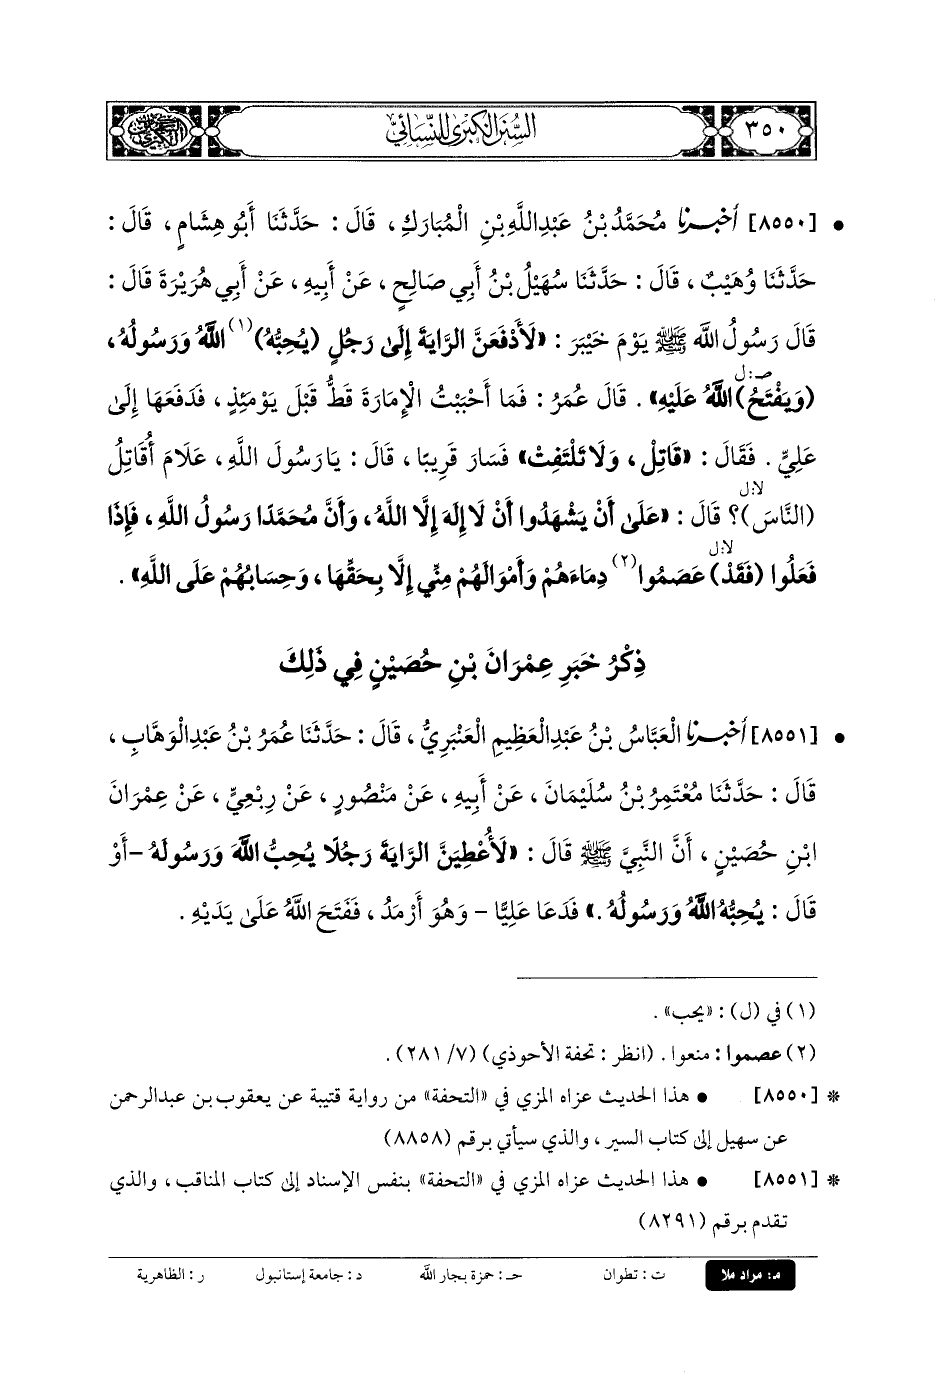 ٣٥٠
السنن الكبرى للنسائي
• [٨٥٥٠] أخبرنا مُحَمَّدُ بْنُ عَبْدِاللَّهِ بْنِ الْمُبَارَكِ، قَالَ: حَدَّثَنَا أَبُو هِشَامٍ، قَالَ:
حَدَّثَنَا وُهَيْبٌ، قَالَ: حَدَّثَنَا سُهَيْلُ بْنُ أَبِي صَالِحٍ، عَنْ أَبِيهِ، عَنْ أَبِي هُرَيْرَةَ قَالَ:
قَالَ رَسُولُ اللَّه ﷺ يَوْمَ خَيْبَرَ: «لَأَدْفَعَنَّ الرَّايَةَ إِلَى رَجُلٍ (يُحِبُّهُ)(١) اللَّهُ وَرَسُولُهُ،
صـ:ل
(وَيَفْتَحُ) اللَّهُ عَلَيْهِ». قَالَ عُمَرُ: فَمَا أَحْبَبْتُ الْإِمَارَةَ قَطُّ قَبْلَ يَوْمَئِذٍ، فَدَفَعَهَا إِلَى
عَلِيٍّ. فَقَالَ: «قَاتِلْ، وَلَا تَلْتَفِتْ» فَسَارَ قَرِيبًا، قَالَ: يَا رَسُولَ اللَّهِ، عَلَامَ أُقَاتِلُ
لا:ل
(النَّاسَ)؟ قَالَ: «عَلَى أَنْ يَشْهَدُوا أَنْ لَا إِلَهَ إِلَّا اللَّهُ، وَأَنَّ مُحَمَّدًا رَسُولُ اللَّهِ، فَإِذَا
لا:ل
فَعَلُوا (فَقَدْ) عَصَمُوا(٢) دِمَاءَهُمْ وَأَمْوَالَهُمْ مِنِّي إِلَّا بِحَقِّهَا، وَحِسَابُهُمْ عَلَى اللَّهِ».
ذِكْرُ خَبَرِ عِمْرَانَ بْنِ حُصَيْنٍ فِي ذَلِكَ
• [٨٥٥١] أخبرنا الْعَبَّاسُ بْنُ عَبْدِالْعَظِيمِ الْعَنْبَرِيُّ، قَالَ: حَدَّثَنَا عُمَرُ بْنُ عَبْدِالْوَهَّابِ،
قَالَ: حَدَّثَنَا مُعْتَمِرُ بْنُ سُلَيْمَانَ، عَنْ أَبِيهِ، عَنْ مَنْصُورٍ، عَنْ رِبْعِيٍّ، عَنْ عِمْرَانَ
ابْنِ حُصَيْنٍ، أَنَّ النَّبِيَّ ﷺ قَالَ: «لَأُعْطِيَنَّ الرَّايَةَ رَجُلًا يُحِبُّ اللَّهَ وَرَسُولَهُ -أَوْ
قَالَ: يُحِبُّهُ اللَّهُ وَرَسُولُهُ.» فَدَعَا عَلِيًّا - وَهُوَ أَرْمَدُ، فَفَتَحَ اللَّهُ عَلَى يَدَيْهِ.
(١) في (ل): «يحب».
(٢) عصموا: منعوا. (انظر: تحفة الأحوذي) (٧/ ٢٨١).
* [٨٥٥٠] • هذا الحديث عزاه المزي في «التحفة» من رواية قتيبة عن يعقوب بن عبدالرحمن
عن سهيل إلى كتاب السير، والذي سيأتي برقم (٨٨٥٨)
* [٨٥٥١] • هذا الحديث عزاه المزي في «التحفة» بنفس الإسناد إلى كتاب المناقب، والذي
تقدم برقم (٨٢٩١)
م: مراد ملا ت: تطوان حـ: حمزة بجار الله د: جامعة إستانبول ر: الظاهرية